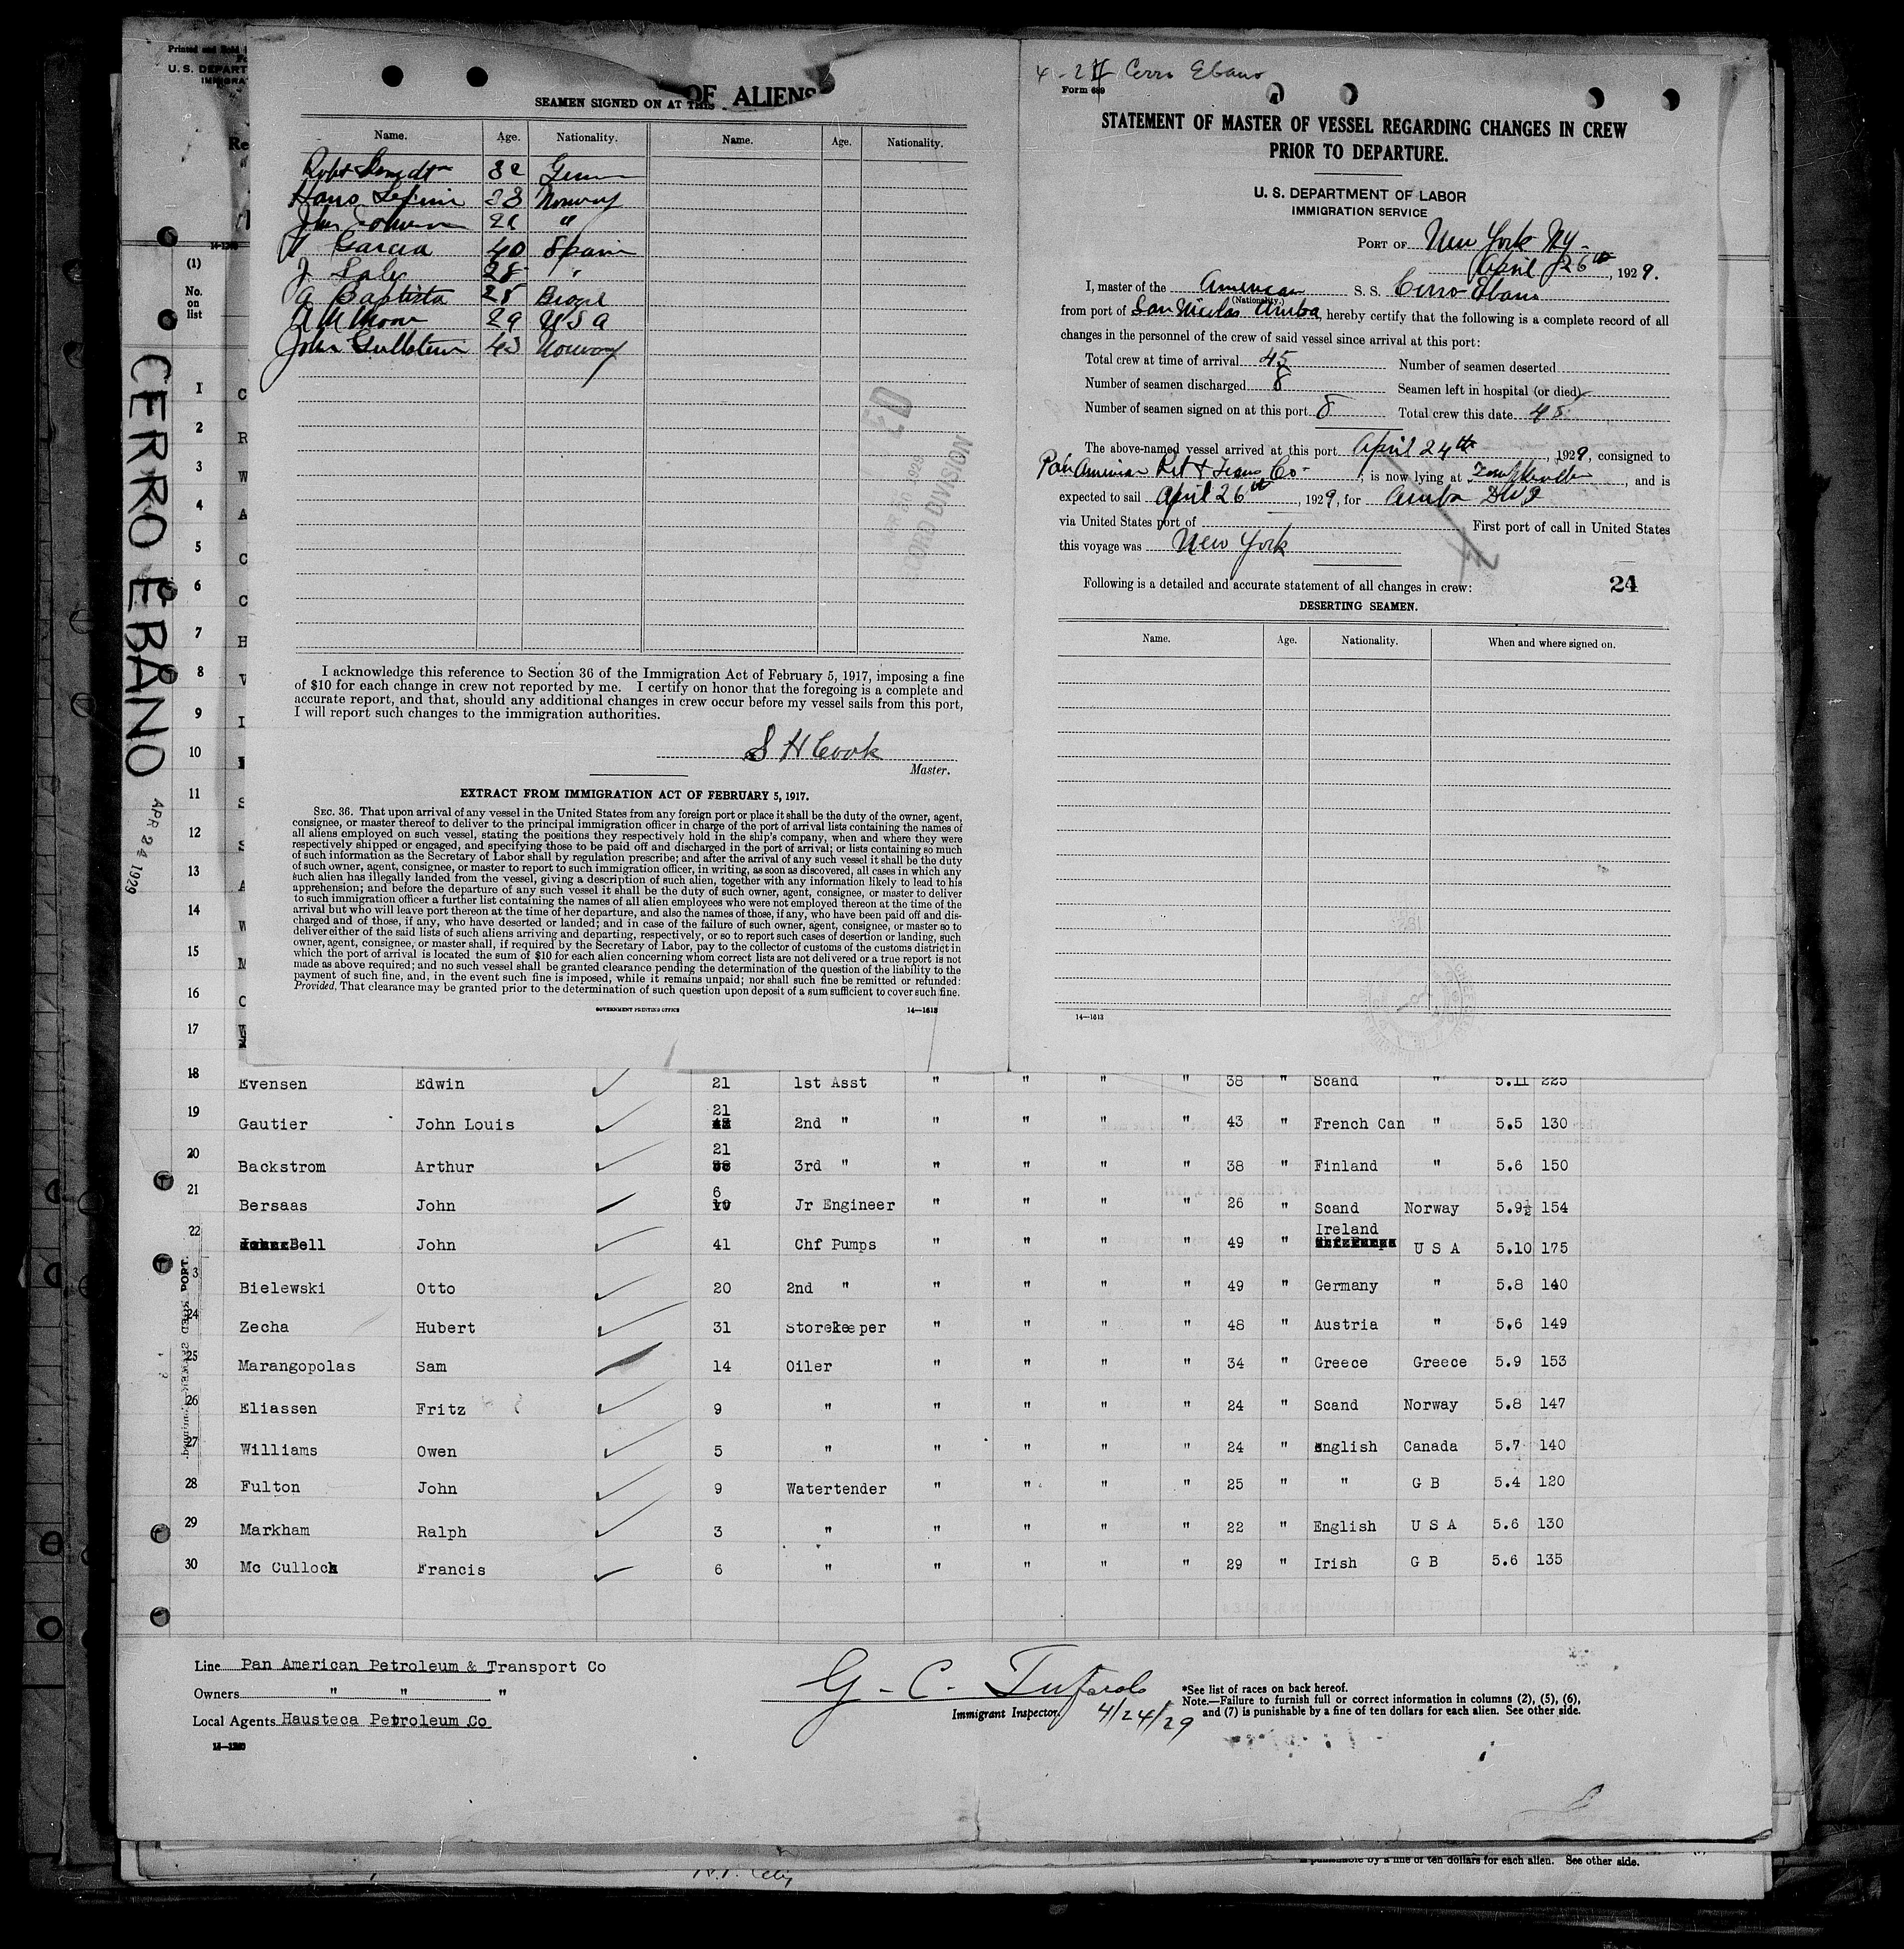 Printed and Sold
U. S. DEPART
IMMIGRA
OF ALIENS
SEAMEN SIGNED ON AT THIS
Name. Age. Nationality. Name. Age. Nationality.
32
Hans 33 Norway
John "
Garcia 40 Spain
J 28 "
A Baptista 28 Brazil
Moore 29 U S A
John 43 Norway
I acknowledge this reference to Section 36 of the Immigration Act of February 5, 1917, imposing a fine
of $10 for each change in crew not reported by me. I certify on honor that the foregoing is a complete and
accurate report, and that, should any additional changes in crew occur before my vessel sails from this port,
I will report such changes to the immigration authorities.
S H Cook
Master.
EXTRACT FROM IMMIGRATION ACT OF FEBRUARY 5, 1917.
SEC. 36. That upon arrival of any vessel in the United States from any foreign port or place it shall be the duty of the owner, agent,
consignee, or master thereof to deliver to the principal immigration officer in charge of the port of arrival lists containing the names of
all aliens employed on such vessel, stating the positions they respectively hold in the ship's company, when and where they were
respectively shipped or engaged, and specifying those to be paid off and discharged in the port of arrival; or lists containing so much
of such information as the Secretary of Labor shall by regulation prescribe; and after the arrival of any such vessel it shall be the duty
of such owner, agent, consignee, or master to report to such immigration officer, in writing, as soon as discovered, all cases in which any
such alien has illegally landed from the vessel, giving a description of such alien, together with any information likely to lead to his
apprehension; and before the departure of any such vessel it shall be the duty of such owner, agent, consignee, or master to deliver
to such immigration officer a further list containing the names of all alien employees who were not employed thereon at the time of the
arrival but who will leave port thereon at the time of her departure, and also the names of those, if any, who have been paid off and dis-
charged and of those, if any, who have deserted or landed; and in case of the failure of such owner, agent, consignee, or master so to
deliver either of the said lists of such aliens arriving and departing, respectively, or so to report such cases of desertion or landing, such
owner, agent, consignee, or master shall, if required by the Secretary of Labor, pay to the collector of customs of the customs district in
which the port of arrival is located the sum of $10 for each alien concerning whom correct lists are not delivered or a true report is not
made as above required; and no such vessel shall be granted clearance pending the determination of the question of the liability to the
payment of such fine, and, in the event such fine is imposed, while it remains unpaid; nor shall such fine be remitted or refunded:
Provided, That clearance may be granted prior to the determination of such question upon deposit of a sum sufficient to cover such fine.
GOVERNMENT PRINTING OFFICE 14—1613
4 - 24 Cerro Ebano
Form 689
STATEMENT OF MASTER OF VESSEL REGARDING CHANGES IN CREW
PRIOR TO DEPARTURE.
U. S. DEPARTMENT OF LABOR
IMMIGRATION SERVICE
PORT OF New York NY-
April 26th, 1929.
I, master of the American S. S. Cerro Ebano
(Nationality.)
from port of San Nicolas Aruba, hereby certify that the following is a complete record of all
changes in the personnel of the crew of said vessel since arrival at this port:
Total crew at time of arrival 45 Number of seamen deserted
Number of seamen discharged 8 Seamen left in hospital (or died)
Number of seamen signed on at this port 8 Total crew this date 45
The above-named vessel arrived at this port April 24th, 1929, consigned to
Pan American Pet & Trans Co-, is now lying at Tompkinsville, and is
expected to sail April 26th, 1929, for Aruba DWI
via United States port of First port of call in United States
this voyage was New York
Following is a detailed and accurate statement of all changes in crew: 24
DESERTING SEAMEN.
Name. Age. Nationality. When and where signed on.
14—1613
CERRO EBANO
APR 24 1929
(1)
No.
on
list
1 C
2 R
3 W
4 A
5 C
6 C
7 H
8 V
9 I
10
11 S
12 S
13 A
14 W
15 M
16 C
17 W
18 Evensen Edwin 21 1st Asst " " " " 38 " Scand " 5.11 225
19 Gautier John Louis 21 2nd " " " " " 43 " French Can " 5.5 130
20 Backstrom Arthur 21 3rd " " " " " 38 " Finland " 5.6 150
21 Bersaas John 6 Jr Engineer " " " " 26 " Scand Norway 5.9½ 154
22 Bell John 41 Chf Pumps " " " " 49 " Ireland U S A 5.10 175
3 Bielewski Otto 20 2nd " " " " " 49 " Germany " 5.8 140
24 Zecha Hubert 31 Storekeeper " " " " 48 " Austria " 5.6 149
25 Marangopolas Sam 14 Oiler " " " " 34 " Greece Greece 5.9 153
26 Eliassen Fritz 9 " " " " " 24 " Scand Norway 5.8 147
27 Williams Owen 5 " " " " " 24 " English Canada 5.7 140
28 Fulton John 9 Watertender " " " " 25 " " G B 5.4 120
29 Markham Ralph 3 " " " " " 22 " English U S A 5.6 130
30 Mc Culloch Francis 6 " " " " " 29 " Irish G B 5.6 135
Line Pan American Petroleum & Transport Co
Owners " " "
Local Agents Hausteca Petroleum Co
G - C -
Immigrant Inspector. 4/24/29
*See list of races on back hereof.
Note.—Failure to furnish full or correct information in columns (2), (5), (6),
and (7) is punishable by a fine of ten dollars for each alien. See other side.
is punishable by a fine of ten dollars for each alien. See other side.